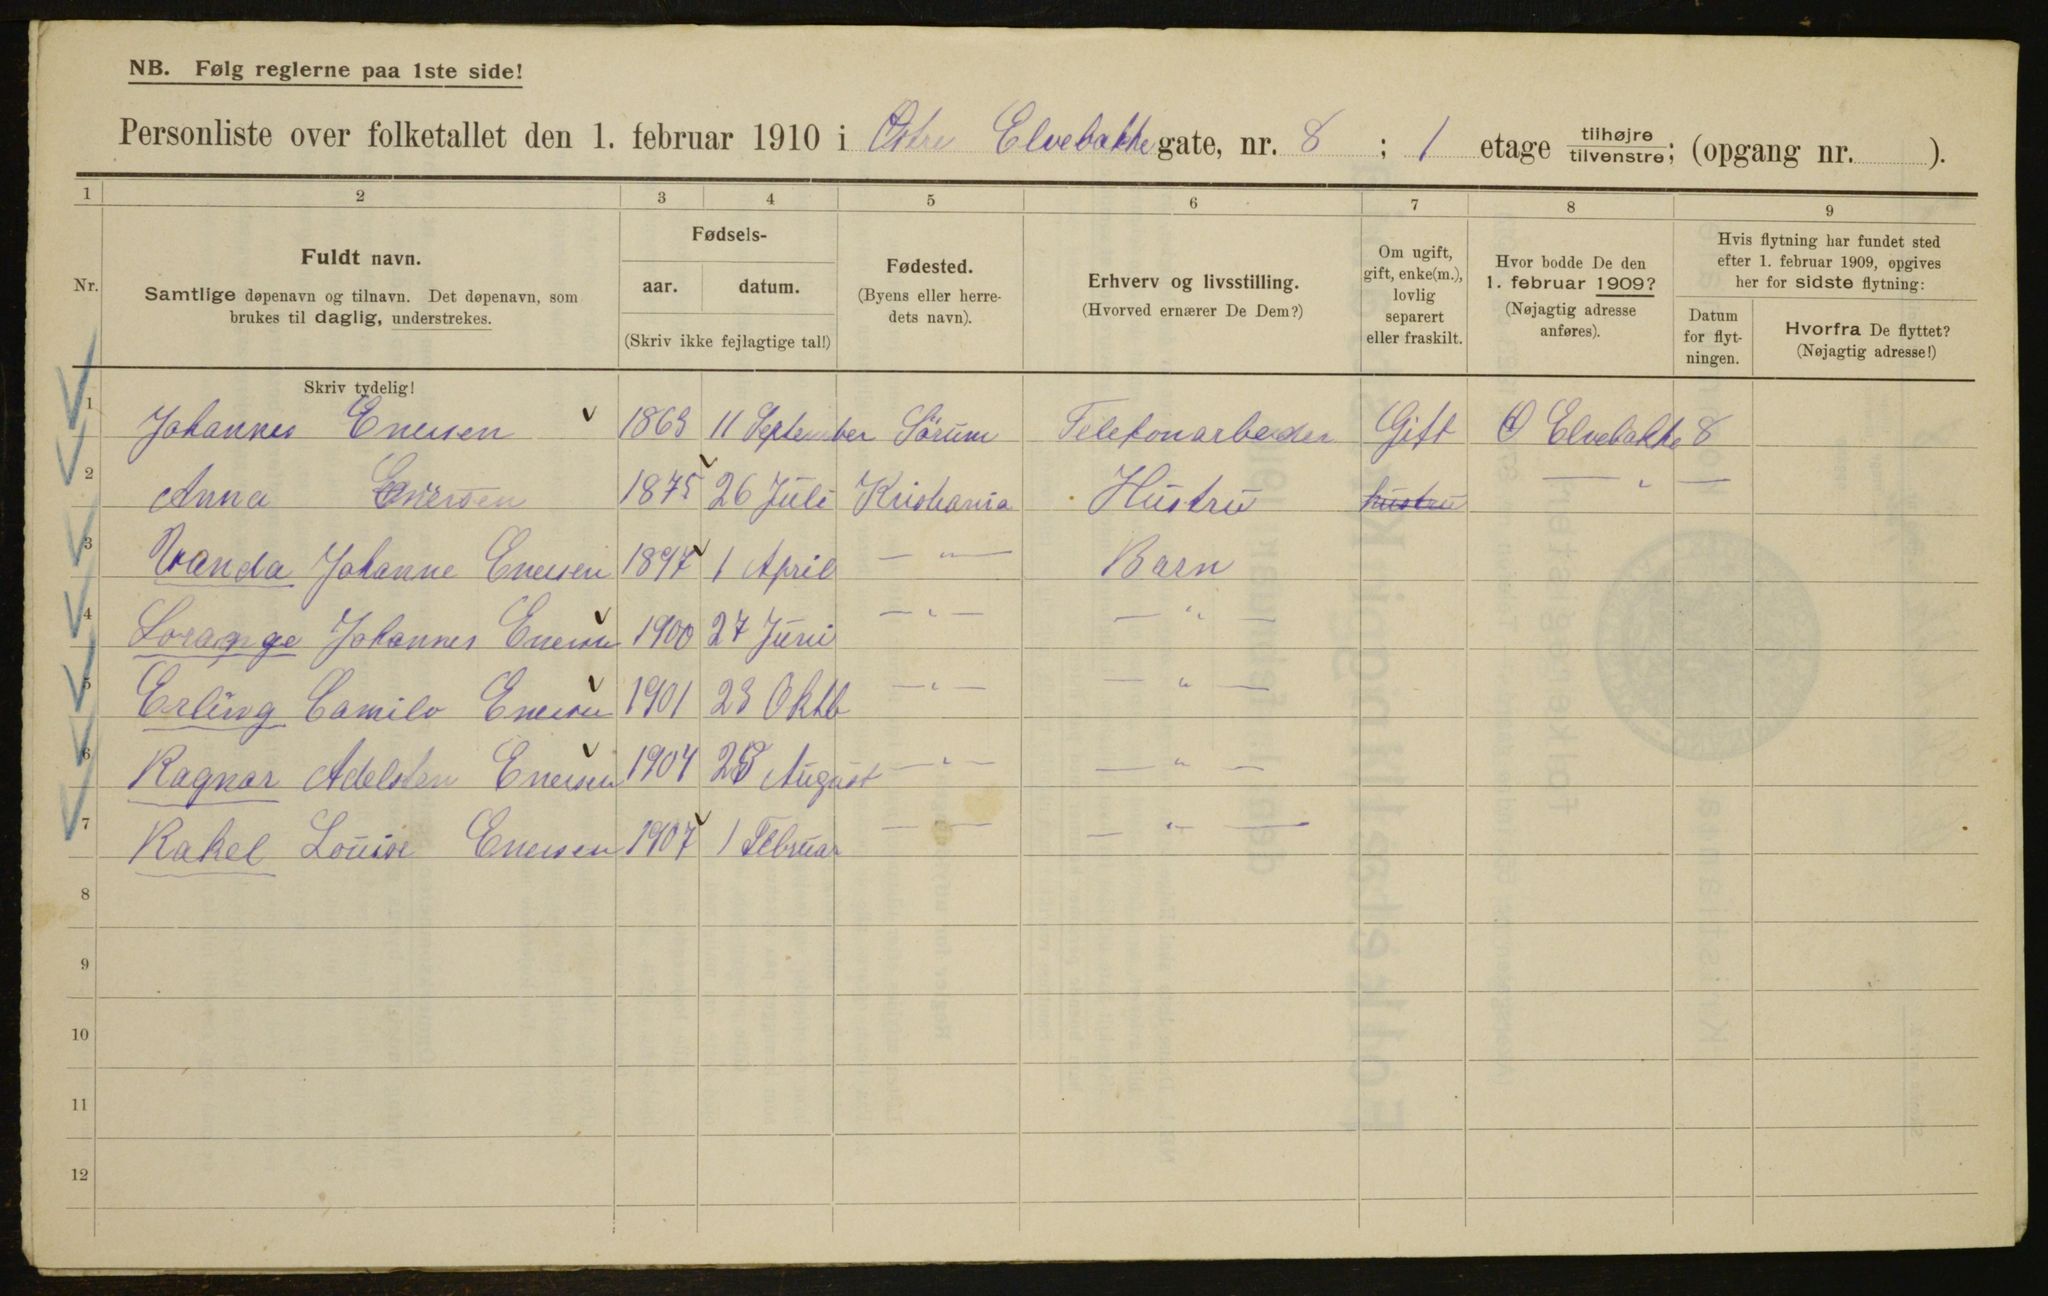 NB. Følg reglerne paa 1ste side!
Personliste over folketallet den 1. februar 1910 i Østre Elvebakke gate, nr. 8 ; 1 etage tilhøjre tilvenstre; (opgang nr. ).
1 2 3 4 5 6 7 8 9
Nr.
Fuldt navn.
Samtlige døpenavn og tilnavn. Det døpenavn, som
brukes til daglig, understrekes.
Fødsels-
aar. datum.
(Skriv ikke fejlagtige tal!)
Fødested.
(Byens eller herre-
dets navn).
Erhverv og livsstilling.
(Hvorved ernærer De Dem?)
Om ugift,
gift, enke(m.),
lovlig
separert
eller fraskilt.
Hvor bodde De den
1. februar 1909?
(Nøjagtig adresse
anføres).
Hvis flytning har fundet sted
efter 1. februar 1909, opgives
her for sidste flytning:
Datum
for flyt-
ningen.
Hvorfra De flyttet?
(Nøjagtig adresse!)
Skriv tydelig!
1 Johannes Enersen 1863 11 September Sörum Telefonarbeider Gift Ø Elvebakke 8
2 Anna Enersen 1875 26 Juli Kristiania Hustru hustru — " —
3 Wanda Johanne Enersen 1897 1 April — " — Barn
4 Lorange Johannes Enersen 1900 27 Juni — " — — " —
5 Erling Camilo Enersen 1901 23 Oktb — " — — " —
6 Ragnar Adelsten Enersen 1904 25 August — " — — " —
7 Rakel Louise Enersen 1907 1 Februar — " — — " —
8
9
10
11
12